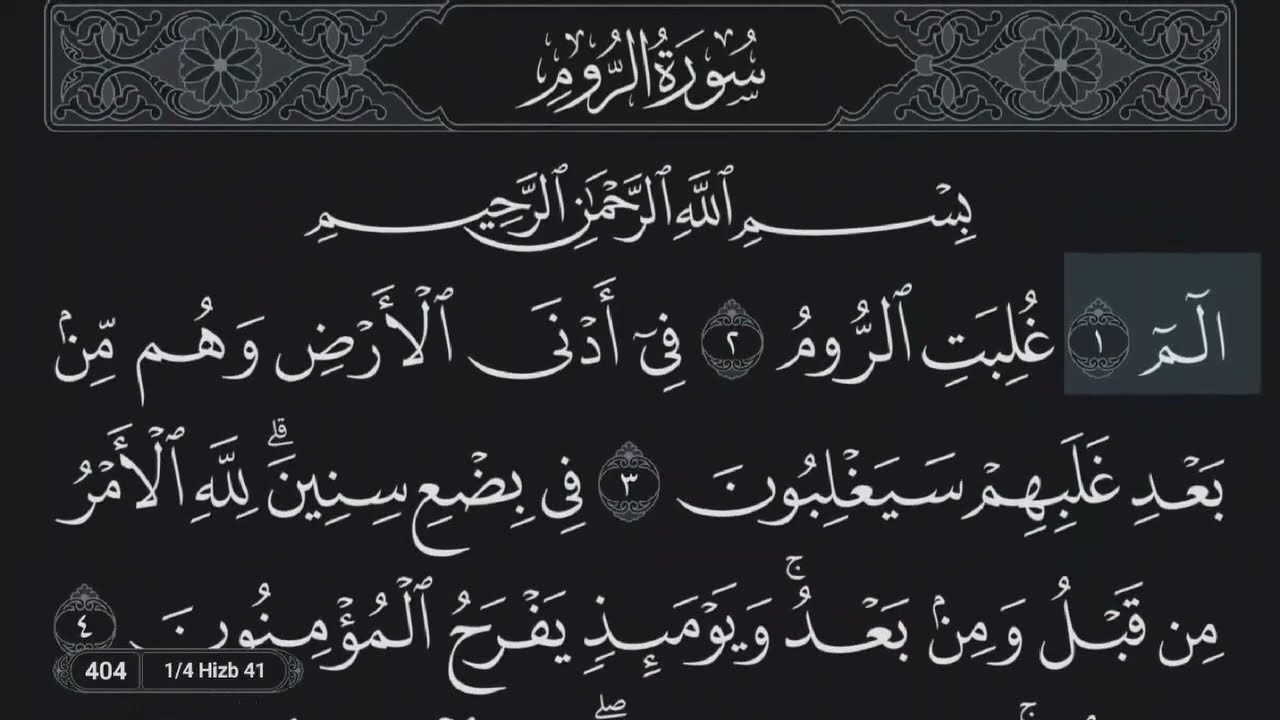 سُورَةُ الرُّومِ
بِسْمِ ٱللَّهِ ٱلرَّحْمَٰنِ ٱلرَّحِيمِ
الٓمٓ ١ غُلِبَتِ ٱلرُّومُ ٢ فِىٓ أَدْنَى ٱلْأَرْضِ وَهُم مِّنۢ
بَعْدِ غَلَبِهِمْ سَيَغْلِبُونَ ٣ فِى بِضْعِ سِنِينَ ۗ لِلَّهِ ٱلْأَمْرُ
مِن قَبْلُ وَمِنۢ بَعْدُ ۚ وَيَوْمَئِذٍ يَفْرَحُ ٱلْمُؤْمِنُونَ ٤
404 1/4 Hizb 41